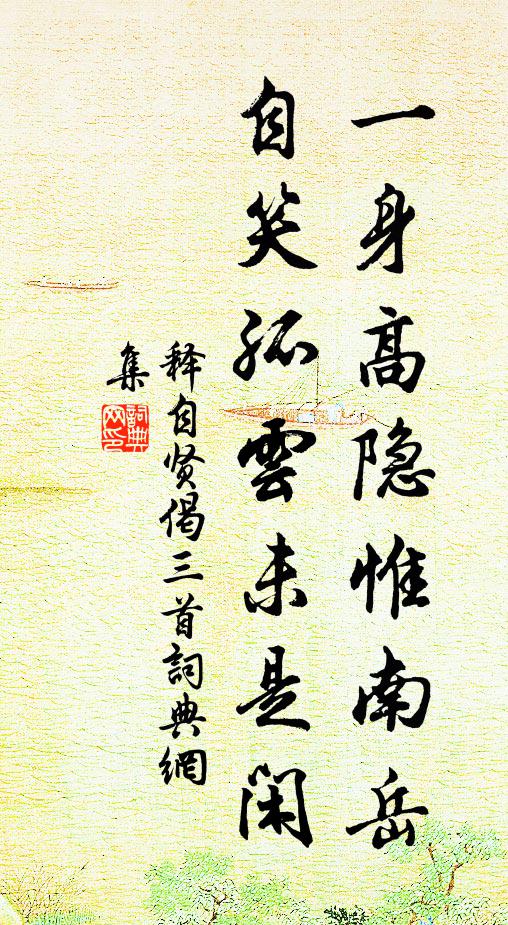 一身高隐惟南岳
自笑孤雲未是闲
释自贤偈三首詞典網
集
詞典网印